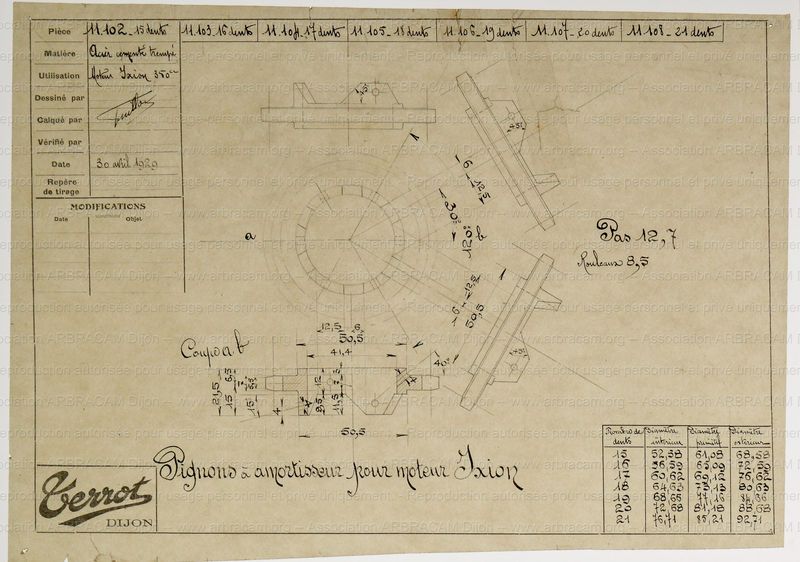 Pièce 11.102 - 15 dents 11.103 - 16 dents 11.104 - 17 dents 11.105 - 18 dents 11.106 - 19 dents 11.107 - 20 dents 11.108 - 21 dents
Matière Acier cémenté trempé
Utilisation Moteur Ixion 350cc
Dessiné par
Calqué par
Vérifié par
Date 30 avril 1929
Repère
de tirage
MODIFICATIONS
Date Objet
a
b
6
12,5
30°
120°
Pas 12,7
Rouleaux 8,5
12,5
6
50,5
12,5 6
50,5
41,4
Coupe a b
21,5
15
6,5
15
4
9,5
12
11,5
50,5
Pignons à amortisseur pour moteur Ixion
Terrot
DIJON
Nombre de dents Diamètre intérieur Diamètre primitif Diamètre extérieur
15 52,58 61,08 68,58
16 56,59 65,09 72,59
17 60,62 69,12 76,62
18 64,63 73,13 80,63
19 68,66 77,16 84,66
20 72,68 81,18 88,68
21 76,71 85,21 92,71
Reproduction autorisée pour usage personnel et privé uniquement. – Association ARBRACAM Dijon – www.arbracam.org